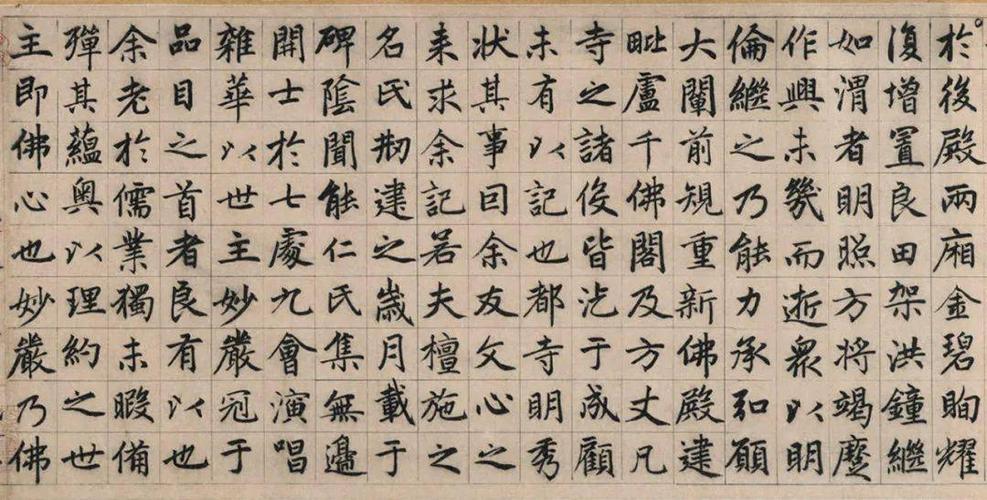 於後殿兩廂金碧眴耀
復增置良田架洪鐘繼
如渭者明照方將竭蹙
作興未幾而逝衆以明
倫繼之乃能力承弘願
大闡前規重新佛殿建
毗盧千佛閣及方丈凡
寺之諸役皆汔于成顧
未有以記也都寺明秀
狀其事囙余友文心之
来求余記若夫檀施之
名氏刱建之歲月載于
碑隂聞能仁氏集無邊
開士於七處九會演唱
雜華以世主妙嚴冠于
品目之首者良有以也
余老於儒業獨未暇備
殫其蘊奥以理約之世
主即佛心也妙嚴乃佛